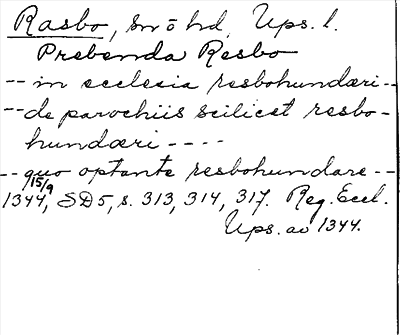 Rasbo, sn o hd, Ups. l.
Prebenda Resbo
-- in ecclesia resbohundæri --
-- de parochiis scilicet resbo-
hundæri - - - -
-- quo optante resbohundare --
1344, 15/9 SD 5, s. 313, 314, 317. Reg. Eccl.
Ups. av 1344.